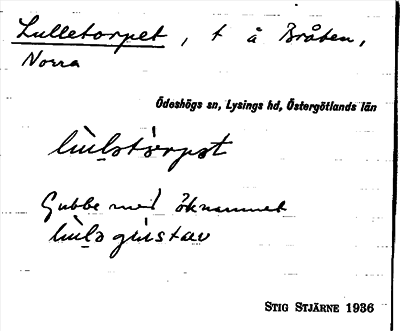 Lulletorpet, t å Bråten,
Norra
Ödeshögs sn, Lysings hd, Östergötlands län
Gubbe med öknamnet
STIG STJÄRNE 1936